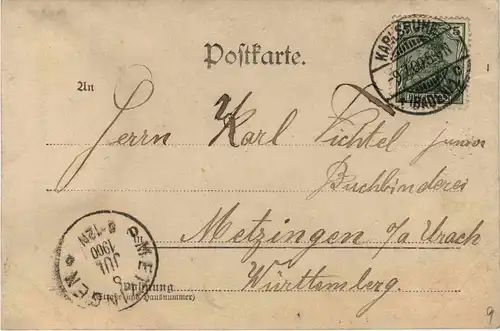 Postkarte.
KARLSRUHE
(BADEN)
5
An
Herrn Karl Fichtel junior
Buchbinderei
Metzingen o/a Urach
in
Württemberg.
METZINGEN
JUL
1900
8-12N
Wohnung
(Straße und Hausnummer)
9